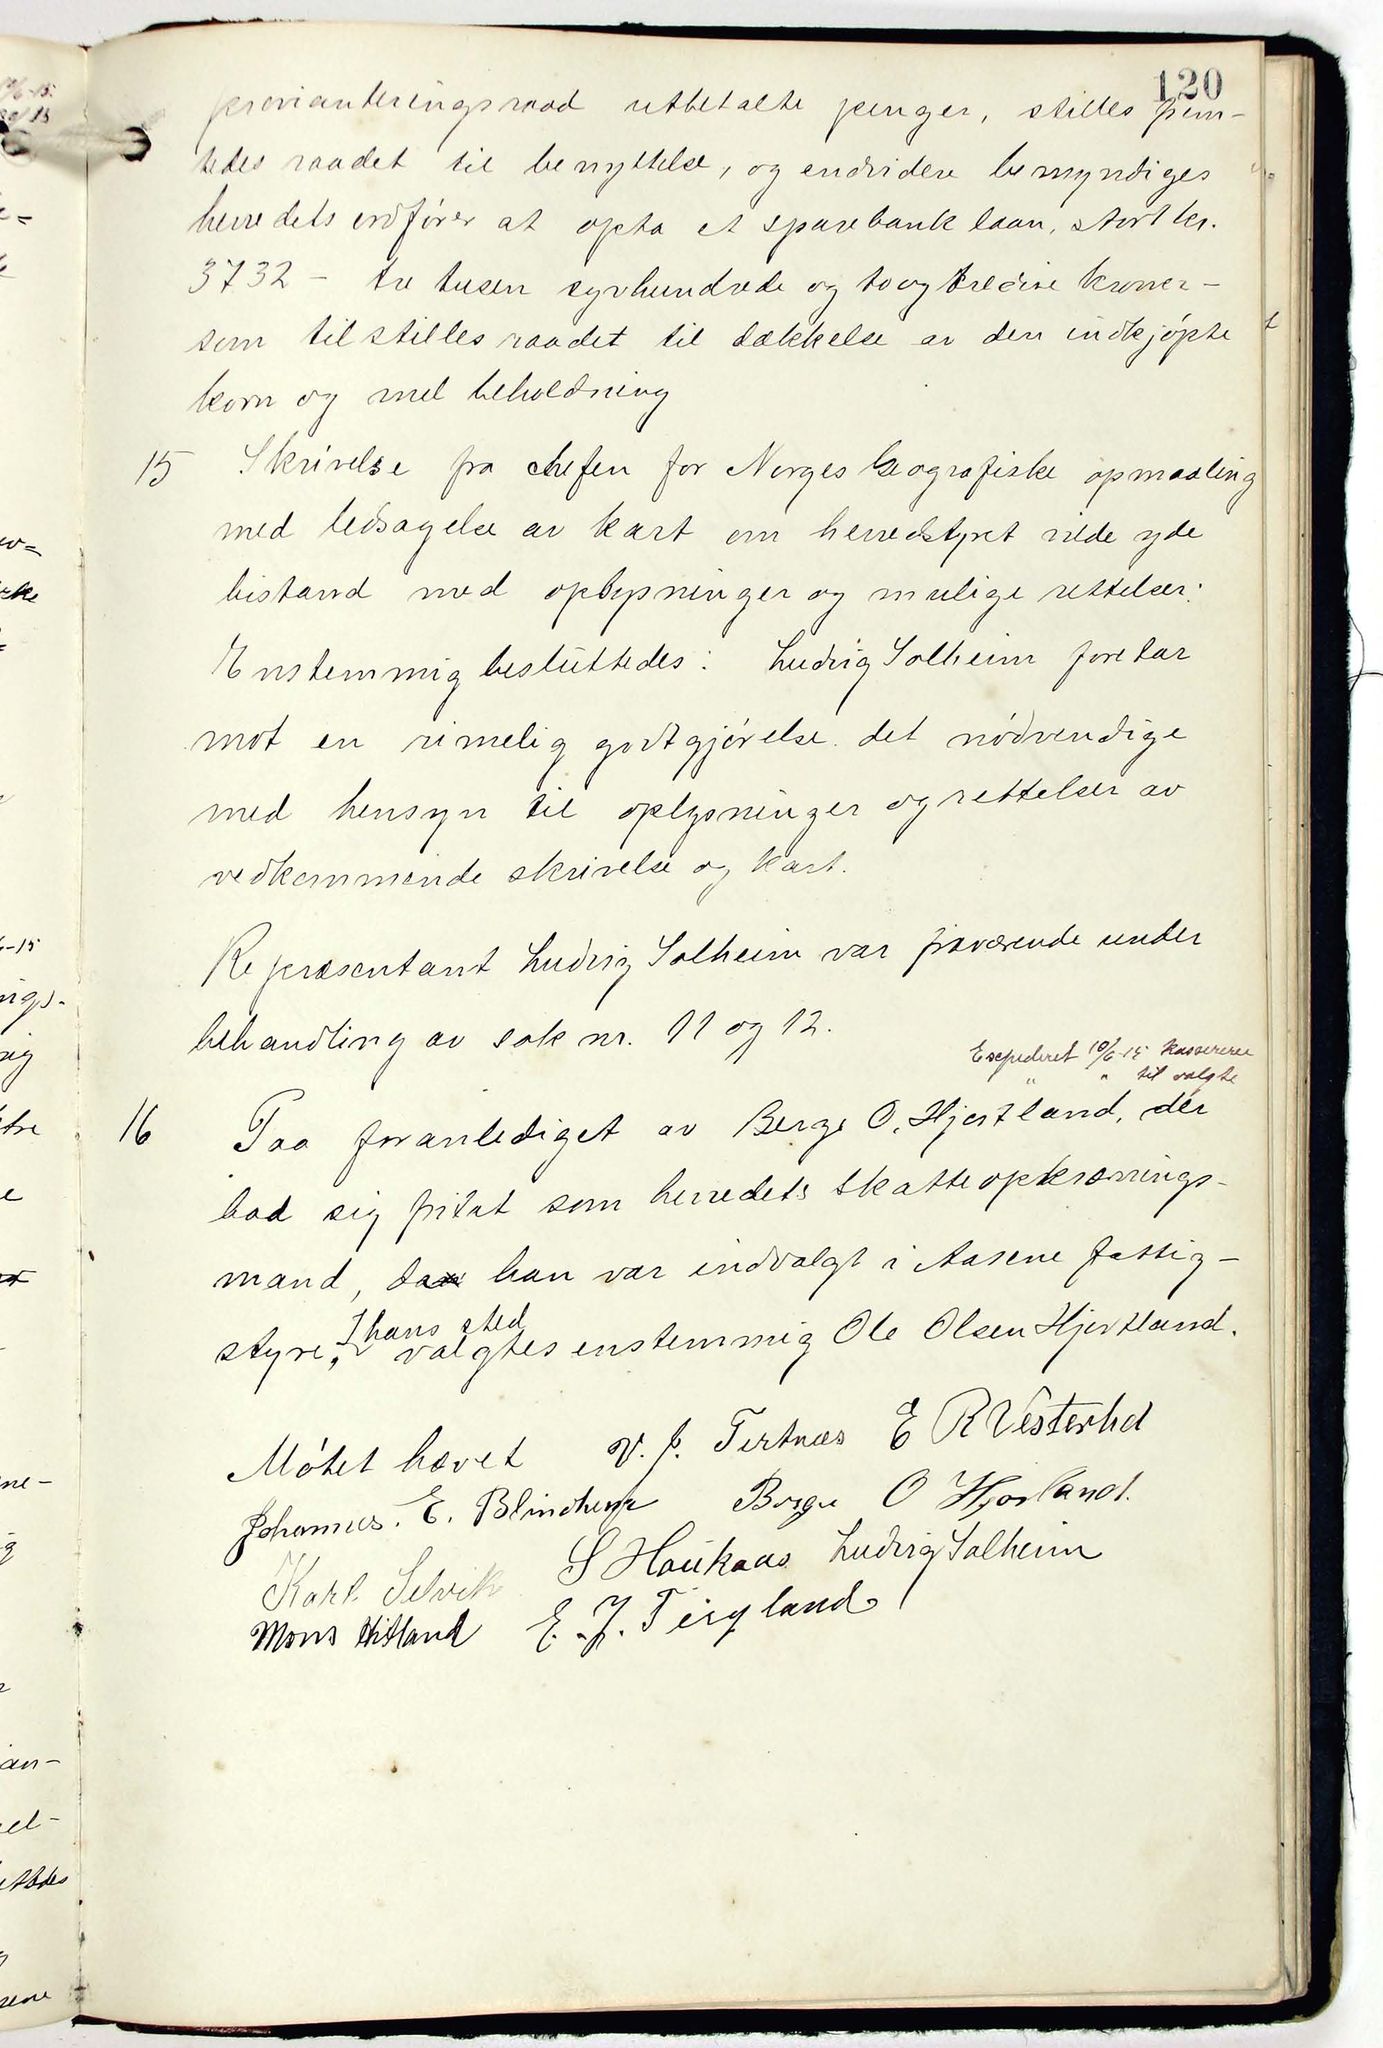 120
provianteringsraad utbetalte penger, stilles frem-
tedes raadet til benyttelse, og endvidere bemyndiges
herredets ordfører at opta et sparebanklaan, stort kr.
3732 - tre tusen syvhundrede og toogtredive kroner -
som tilstilles raadet til dækkelse av den indkjøpte
korn og mel beholdning
15 Skrivelse fra chefen for Norges Geografiske opmaaling
med ledsagelse av kart om herredstyret vilde yde
bistand med oplysninger og mulige rettelser.
Enstemmig besluttedes: Ludvig Solheim foretar
mot en rimelig godtgjørelse det nødvendige
med hensyn til oplysninger og rettelser av
vedkommende skrivelse og kart.
Repræsentant Ludvig Solheim var fraværende under
behandling av sak nr. 11 og 12.
Expederet 10/6-15 kassereren
" " til valgte
16 Paa foranlediget av Berge O. Hjortland, der
bad sig fritat som herredets skatteopkrævnings-
mand, da han var indvalgt i Aasene fattig-
styre, I hans sted valgtes enstemmig Ole Olsen Hjortland.
Møtet hævet V. J. Tertnæs E R Vesterlid
Johannes. E. Blindheim Børge O Hjorland.
Karl Selvik S Haukaas Ludvig Solheim
Mons Hitland E. J. Teigland